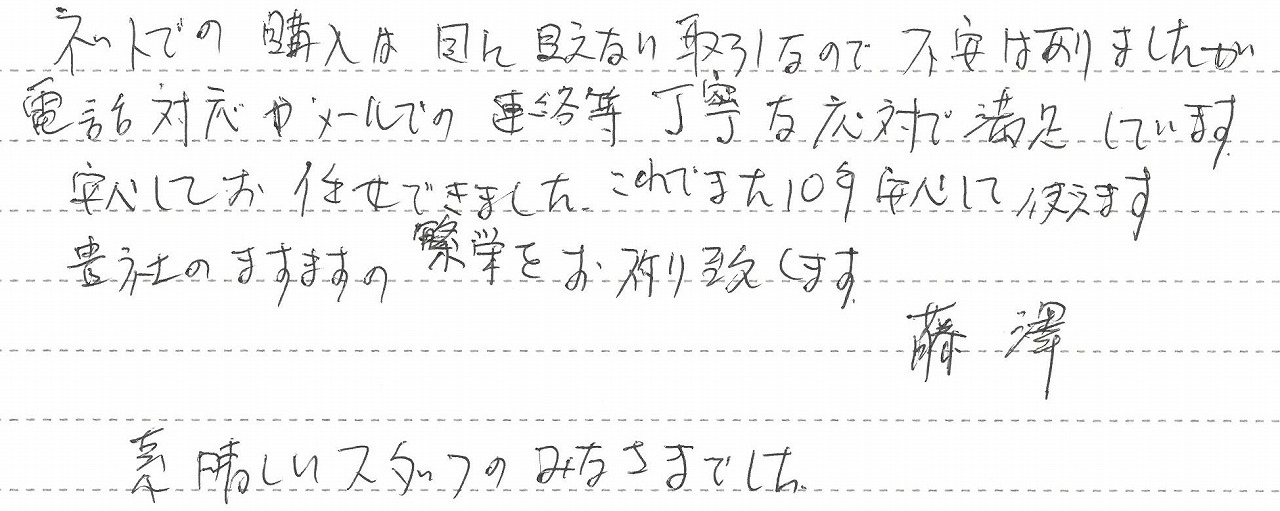 ネットでの購入は目に見えない取引なので不安はありましたが
電話対応やメールでの連絡等丁寧な応対で満足しています。
安心してお任せできました。これでまた10年安心して使えます
貴社のますますの繁栄をお祈り致します。
藤澤
素晴しいスタッフのみなさまでした。